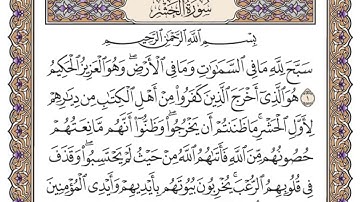 سُورَةُ الحَشْرِ
بِسْمِ اللَّهِ الرَّحْمَٰنِ الرَّحِيمِ
سَبَّحَ لِلَّهِ مَا فِي السَّمَٰوَٰتِ وَمَا فِي الْأَرْضِ ۖ وَهُوَ الْعَزِيزُ الْحَكِيمُ
١ هُوَ الَّذِي أَخْرَجَ الَّذِينَ كَفَرُوا مِنْ أَهْلِ الْكِتَٰبِ مِن دِيَٰرِهِمْ
لِأَوَّلِ الْحَشْرِ ۚ مَا ظَنَنتُمْ أَن يَخْرُجُوا ۖ وَظَنُّوا أَنَّهُم مَّانِعَتُهُمْ
حُصُونُهُم مِّنَ اللَّهِ فَأَتَىٰهُمُ اللَّهُ مِنْ حَيْثُ لَمْ يَحْتَسِبُوا ۖ وَقَذَفَ
فِي قُلُوبِهِمُ الرُّعْبَ ۚ يُخْرِبُونَ بُيُوتَهُم بِأَيْدِيهِمْ وَأَيْدِي الْمُؤْمِنِينَ